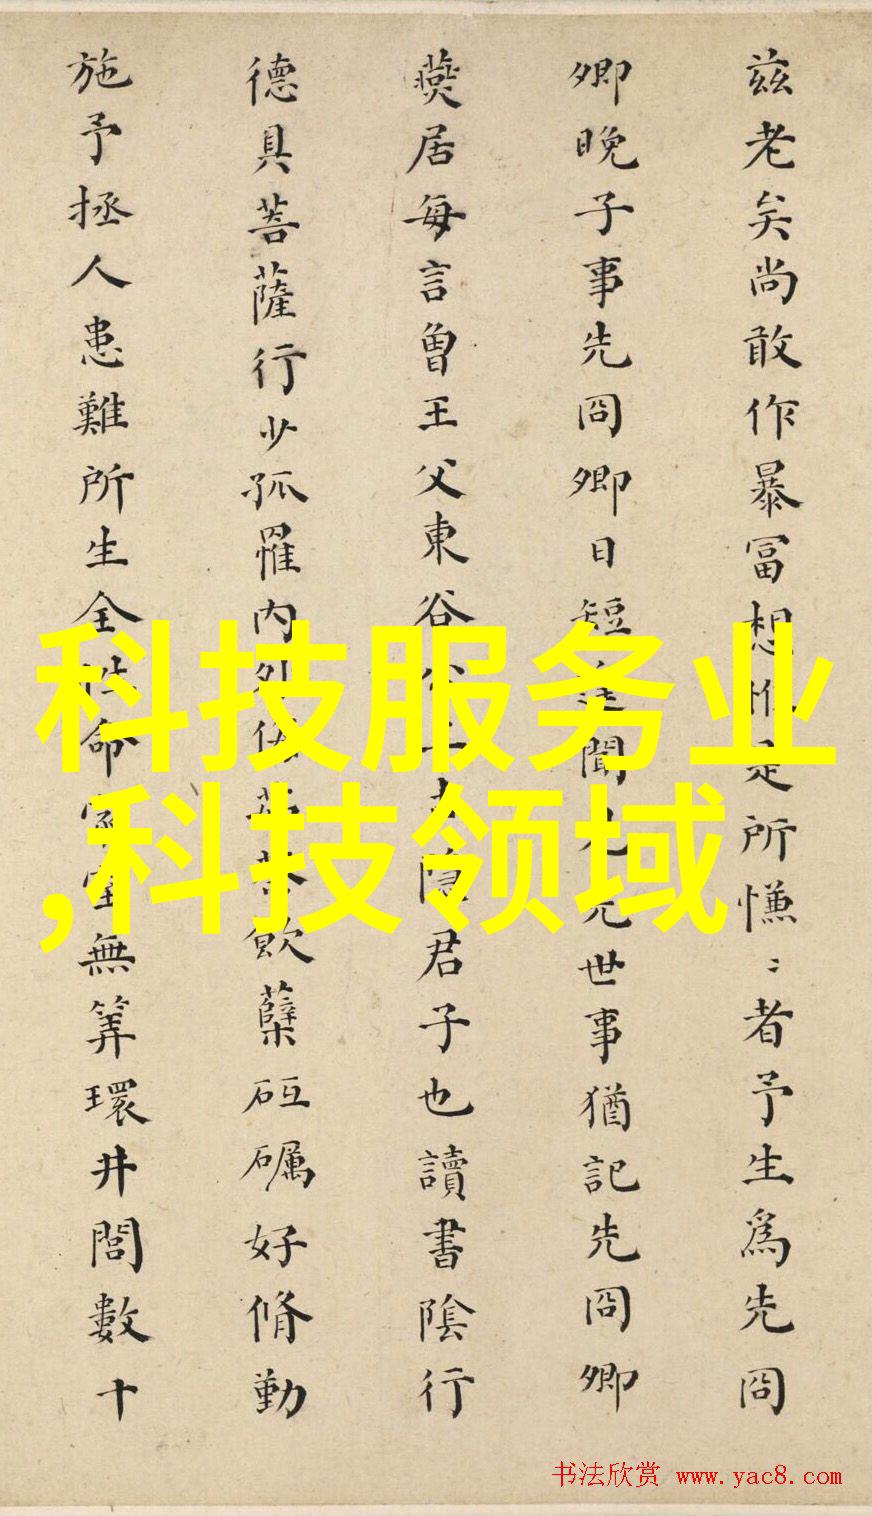 兹老矣尚敢作暴富想惟是所慊〻者予生為先冏
卿晚子事先冏卿日短逮聞先世事猶記先冏卿
燕居每言曾王父東谷公士隱君子也讀書陰行
德具菩薩行少孤罹內外侮茹荼飲蘗砥礪好脩勤
施予拯人患難所生全性命家室無筭環井閭數十
科技服务业
,科技领域
书法欣赏 www.yac8.com